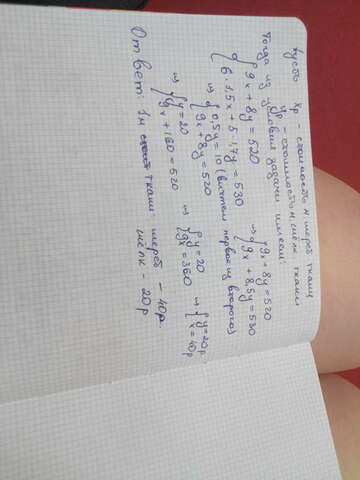 Пусть xр - стоимость м шерст. ткани
yр - стоимость м шёлк. ткани
Тогда из условия задачи имеем:
{ 9x + 8y = 520
{ 6·1,5x + 5·1,7y = 530
⇒ { 9x + 8y = 520
{ 9x + 8,5y = 530
⇒ { 0,5y = 10 (вычтем первое из второго)
{ 9x + 8y = 520
⇒ { y = 20
{ 9x + 160 = 520
⇒ { y = 20
{ 9x = 360
⇒ { y = 20р.
{ x = 40р
Ответ: 1м ткани: шерст - 40р.
шёлк - 20р